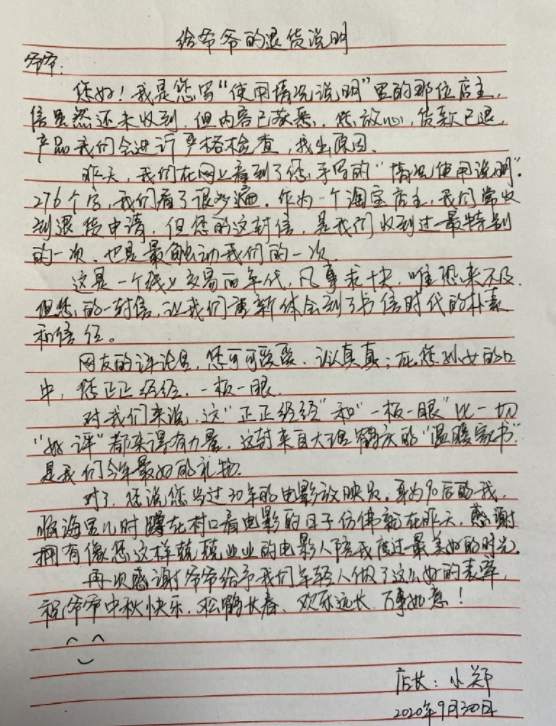 给爷爷的退货说明
爷爷:
您好！我是您写“使用情况说明”里的那位店主，
信虽然还未收到，但内容已获悉，您放心，货款已退，
产品我们会进行严格检查，找出原因。
昨天，我们在网上看到了您手写的“情况使用说明”。
276个字，我们看了很多遍。作为一个淘宝店主，我们常收
到退货申请，但您的这封信，是我们收到过最特别
的一次，也是最触动我们的一次。
这是一个线上交易的年代，凡事求快，唯恐来不及，
但您的一封信，让我们重新体会到了书信时代的朴素
和信任。
网友的评论里，您可可爱爱、认认真真；在您孙女的口
中，您正正经经、一板一眼。
对我们来说，这“正正经经”和“一板一眼”比一切
“好评”都来得有力量，这封来自大理鹤庆的“温暖家书”
是我们今年最好的礼物。
对了，您说您当过30年的电影放映员，身为90后的我，
脑海里儿时蹲在村口看电影的日子仿佛就在昨天，感谢
拥有像您这样兢兢业业的电影人陪我度过最美好的时光。
再次感谢爷爷给予我们年轻人做了这么好的表率，
祝爷爷中秋快乐，松鹤长春、欢乐远长、万事如意！
店长：小郑
2020年9月30日